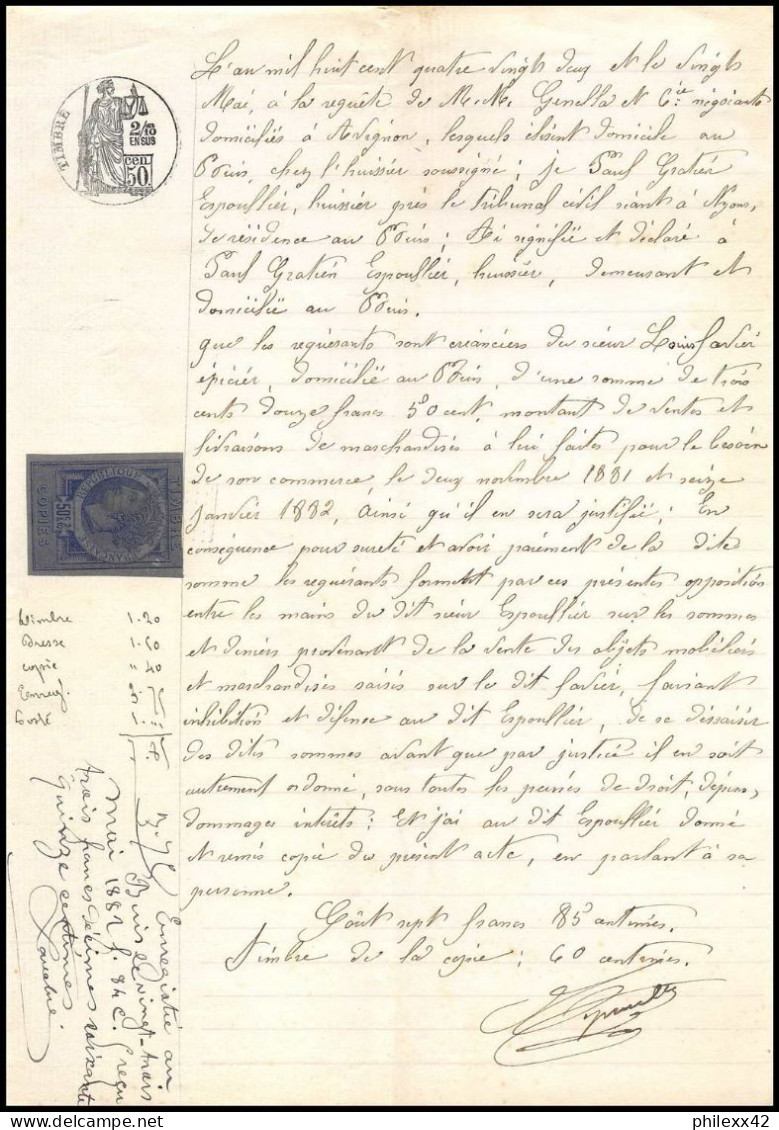 TIMBRE
2/10
EN SUS
50 cen
L'an mil huit cent quatre vingt deux et le vingt
Mai, à la requête de M.M. Genella et Cie négociants
domiciliés à Avignon, lesquels élisent domicile au
Buis, chez l'huissier soussigné; je Paul Gratien
Espoullier, huissier près le Tribunal civil séant à Nyons,
de résidence au Buis; Ai signifié et déclaré à
Paul Gratien Espoullier, huissier, demeurant et
domicilié au Buis.
que les requérants sont créanciers du sieur Louis favier
épicier, domicilié au Buis, d'une somme de trois
cents douze francs 50 cent, montant de ventes et
livraisons de marchandises à lui faites pour le besoin
de son commerce, le deux novembre 1881 et seize
janvier 1882, Ainsi qu'il en sera justifié; En
conséquence pour sureté et avoir paiement de la dite
somme les requérants forment par ces présentes opposition
entre les mains du dit sieur Espoullier sur les sommes
et deniers provenant de la vente des objets mobiliers
et marchandises saisis sur le dit favier, faisant
inhibition et défense au dit Espoullier, de se dessaisir
des dites sommes avant que par justice il en soit
autrement ordonné, sous toutes les peines de droit, dépens,
dommages intérêts: Et j'ai au dit Espoullier donné
et remis copie du présent acte, en parlant à sa
personne.
Coût sept francs 85 centimes.
Timbre de la copie: 60 centimes.
RÉPUBLIQUE FRANÇAISE
TIMBRE
COPIES
50c
Timbre 1.20
Dresse 1.50
copie " 40
Enreg.
Enregistré au
Buis le vingt-trois
mai 1882 f. 84 c. Reçu
trois francs décimes soixante
Quinze centimes
philexx42